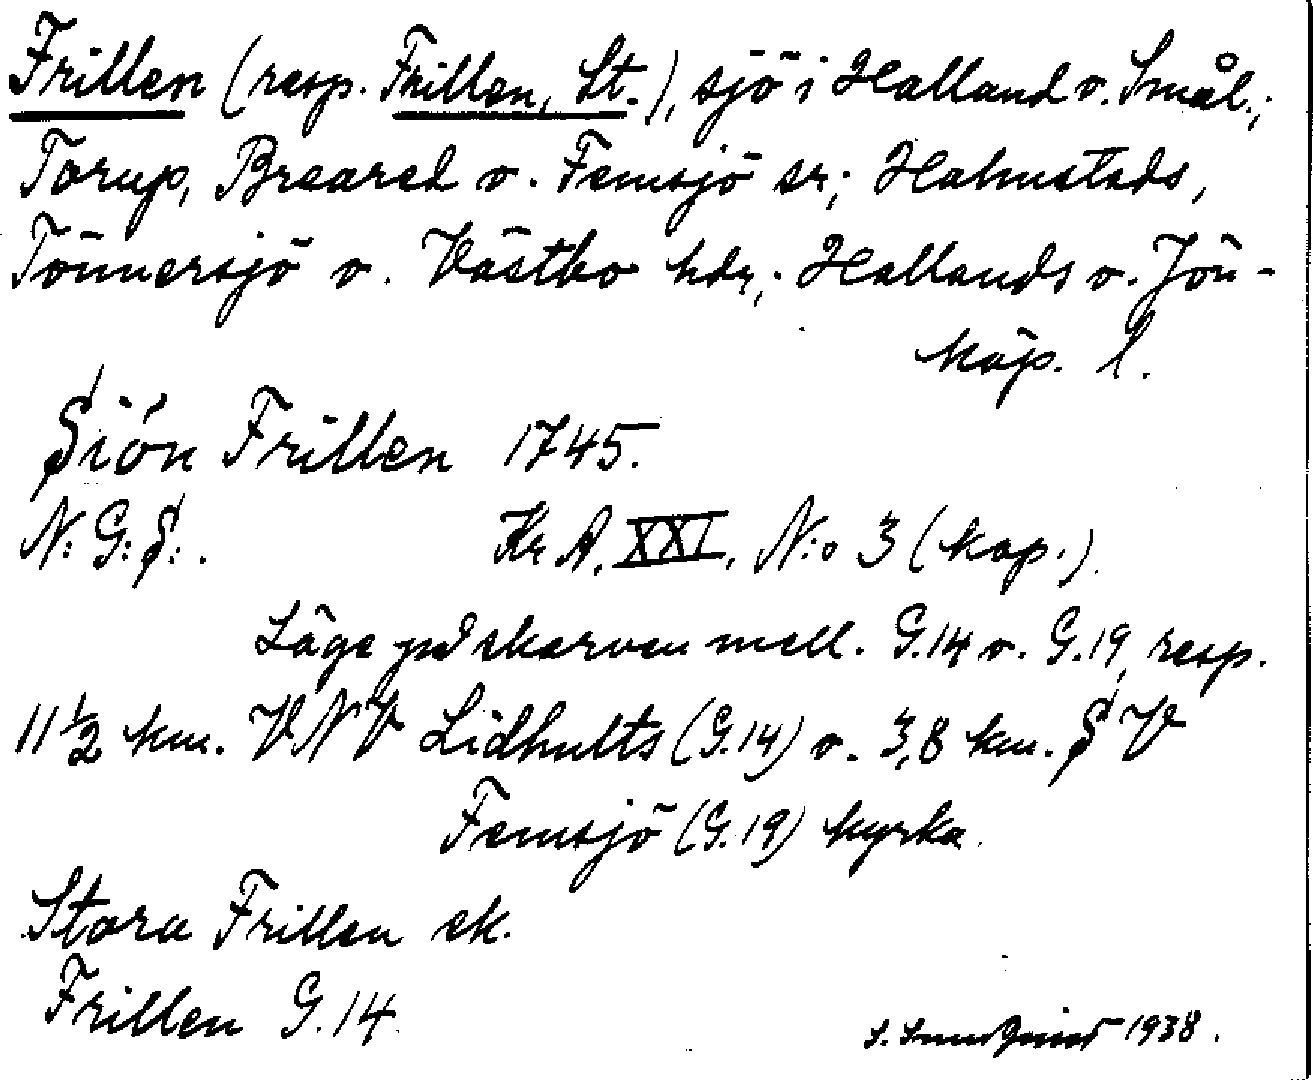 Frillen (resp. Frillen, St.), sjö i Halland o. Smål.;
Torup, Breared o. Femsjö sr; Halmstads,
Tönnersjö o. Västbo hdr; Hallands o. Jön-
köp. l.
Siön Frillen 1745.
N: G: S: .
Kr A. XXI. N:o 3 (kop.).
Läge på skarven mell. G.14 o. G.19, resp.
11 1/2 km. VNV Lidhults (G.14) o. 3,8 km. SV
Femsjö (G.19) kyrka.
Stora Frillen ek.
Frillen G.14
1938.